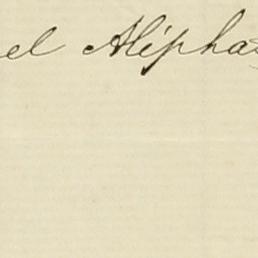 el Alípha